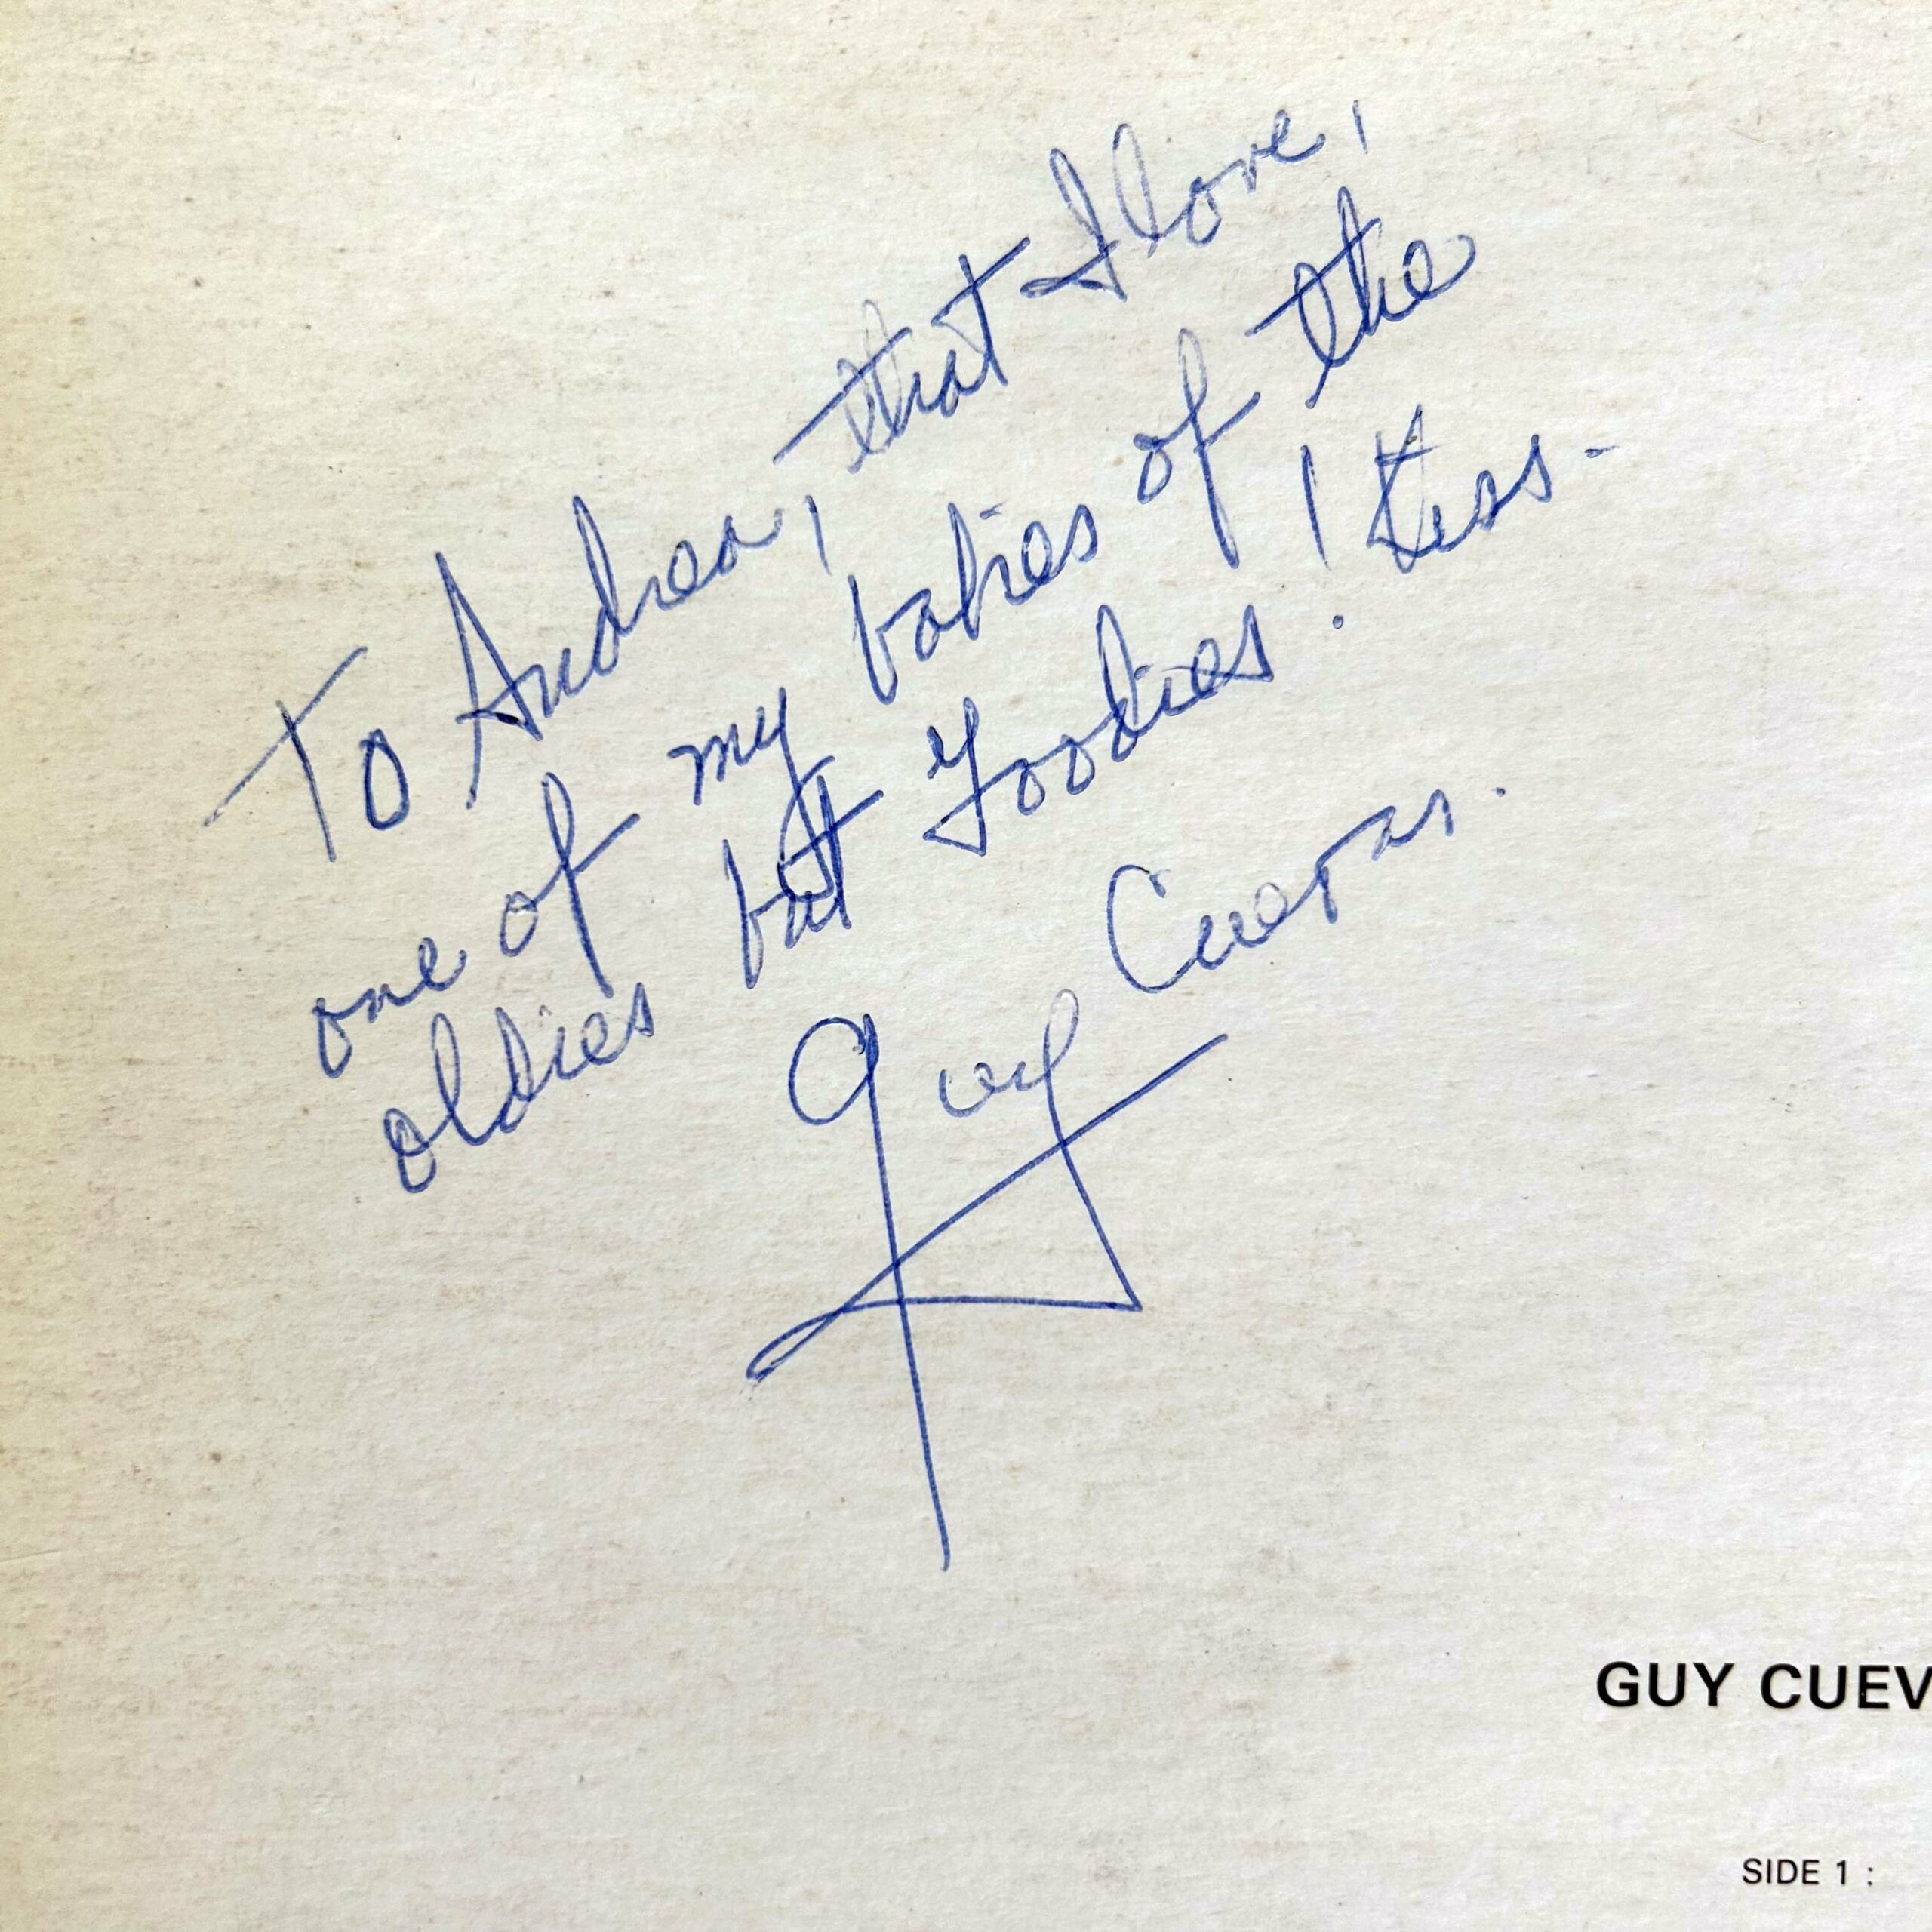 To Andrea, that I love,
one of my babies of the
oldies but goodies! Kiss-
Guy Cuevas.
GUY CUEV
SIDE 1 :